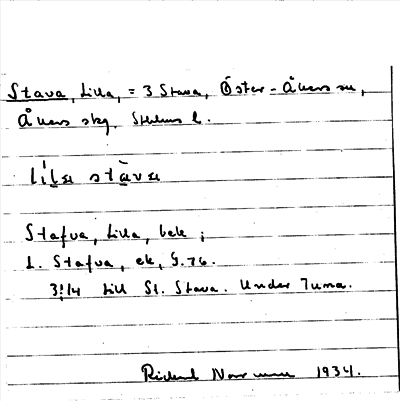 Stava, Lilla, = 3 Stava, Öster-Åkers sn,
Åkers skg, Sthlms l.
lila stāva
Stafva, Lilla, bek ;
1. Stafva, ek, S. 76.
3!14 till St. Stava. Under Tuna.
Rickard 1934.